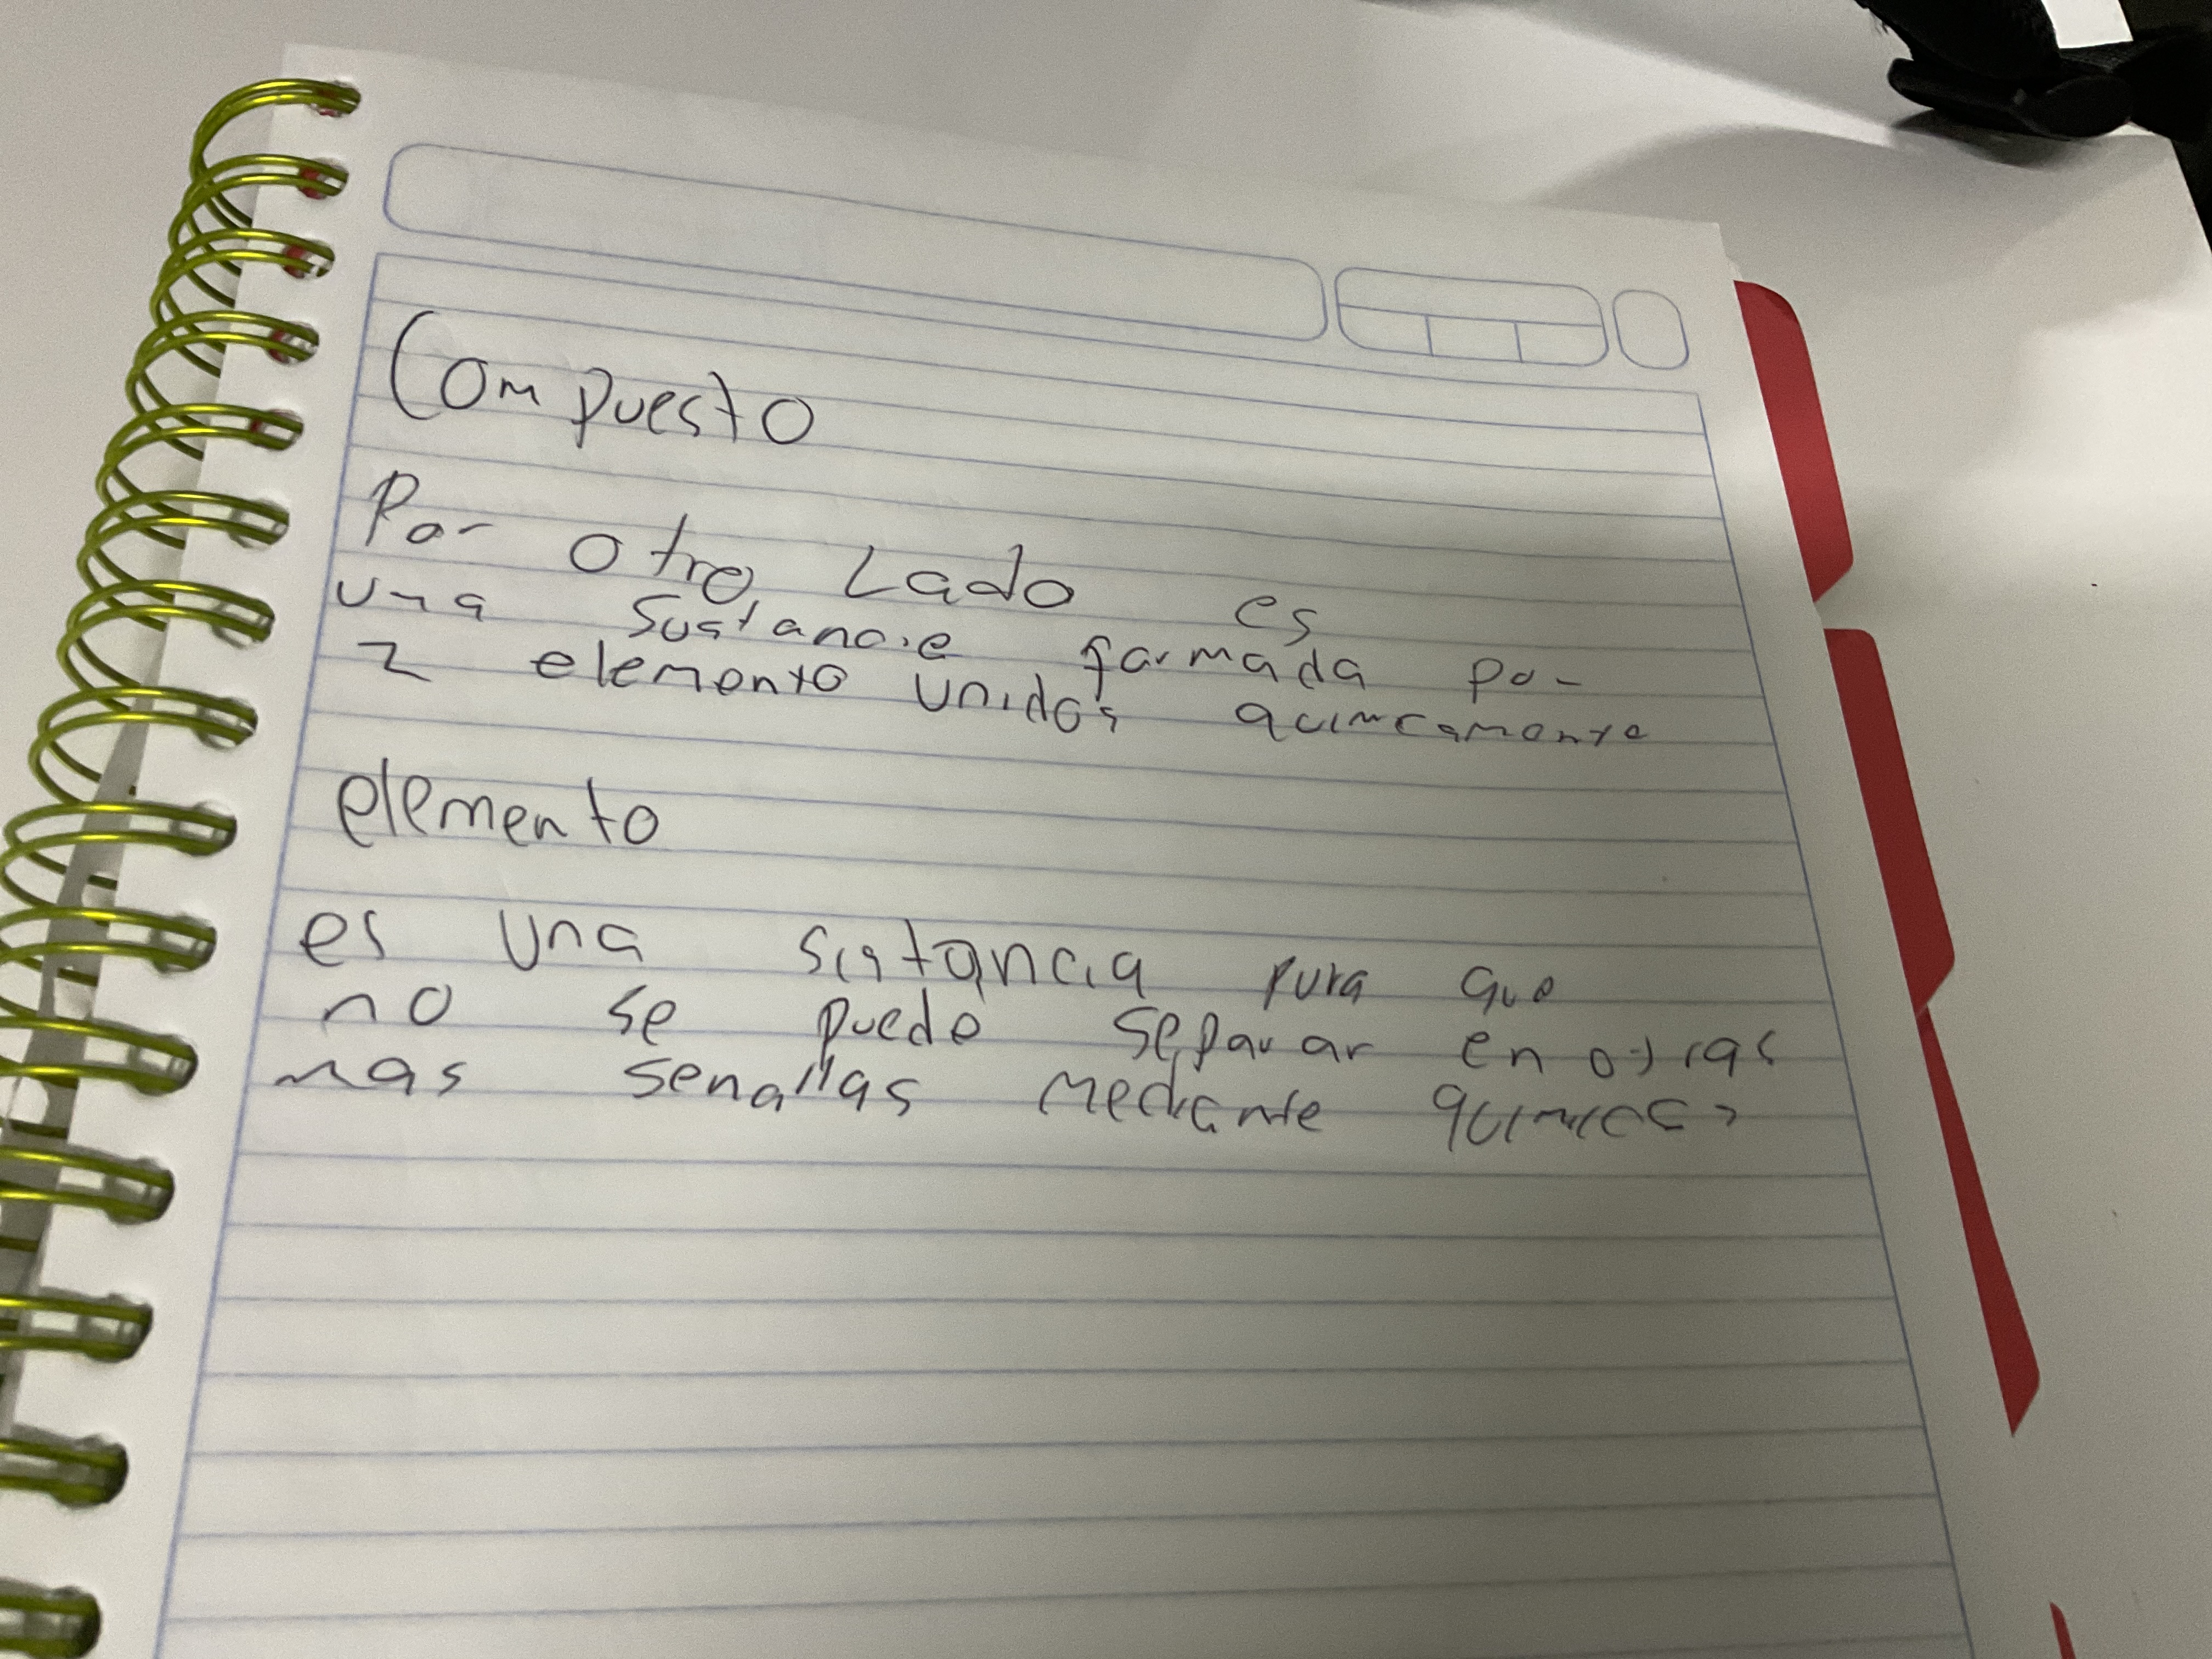 Compuesto
Por otro Lado es
una Sustancie formada por
2 elemento unidos quimcamente
elemento
es una sistancia pura que
no se puede separar en otras
mas senallas mediante quimicas